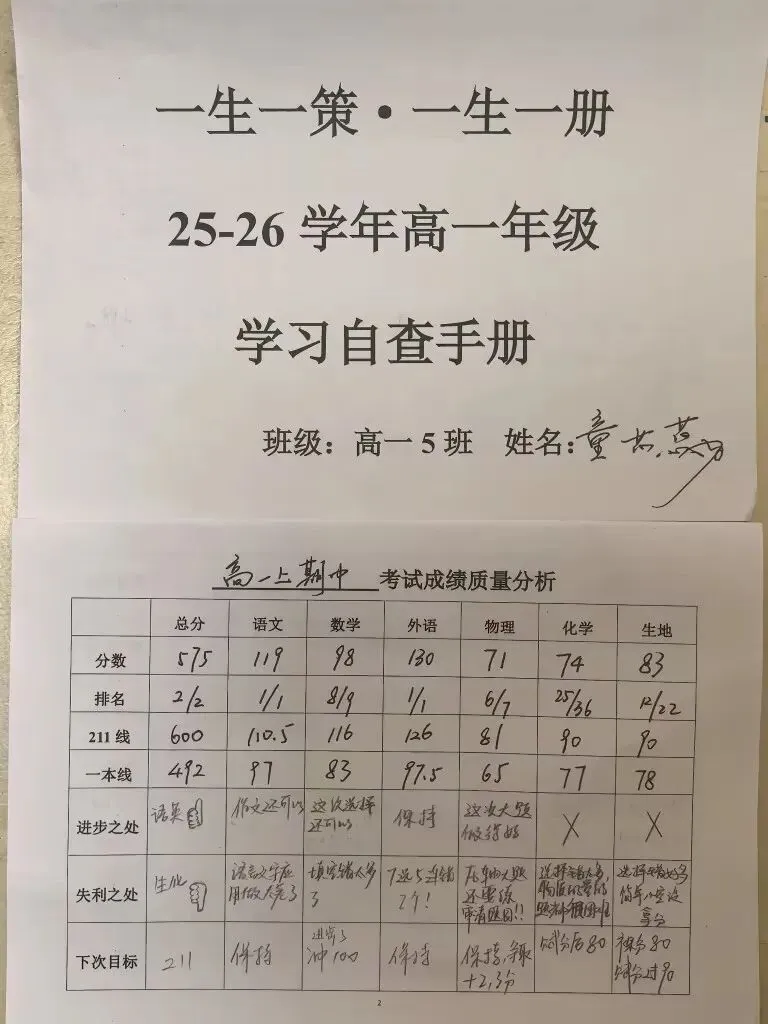 一生一策·一生一册
25-26 学年高一年级
学习自查手册
班级：高一 5 班 姓名：童
高一上期中 考试成绩质量分析
总分 语文 数学 外语 物理 化学 生地
分数 575 119 98 130 71 74 83
排名 2/2 1/1 8/9 1/1 6/7 25/36 12/22
211 线 600 110.5 116 126 81 90 90
一本线 492 97 83 97.5 65 77 78
进步之处 语英 作文还可以 这次选择还可以 保持 这次大题做得好 X X
失利之处 生地 语言文字应用做太差了 填空错太多了 7选5连错2个！ 还要练审清题目!!
下次目标 211 保持 进密了冲100 保持 保持,争取+2,3分 赋分后80 裸分80赋分过90
2